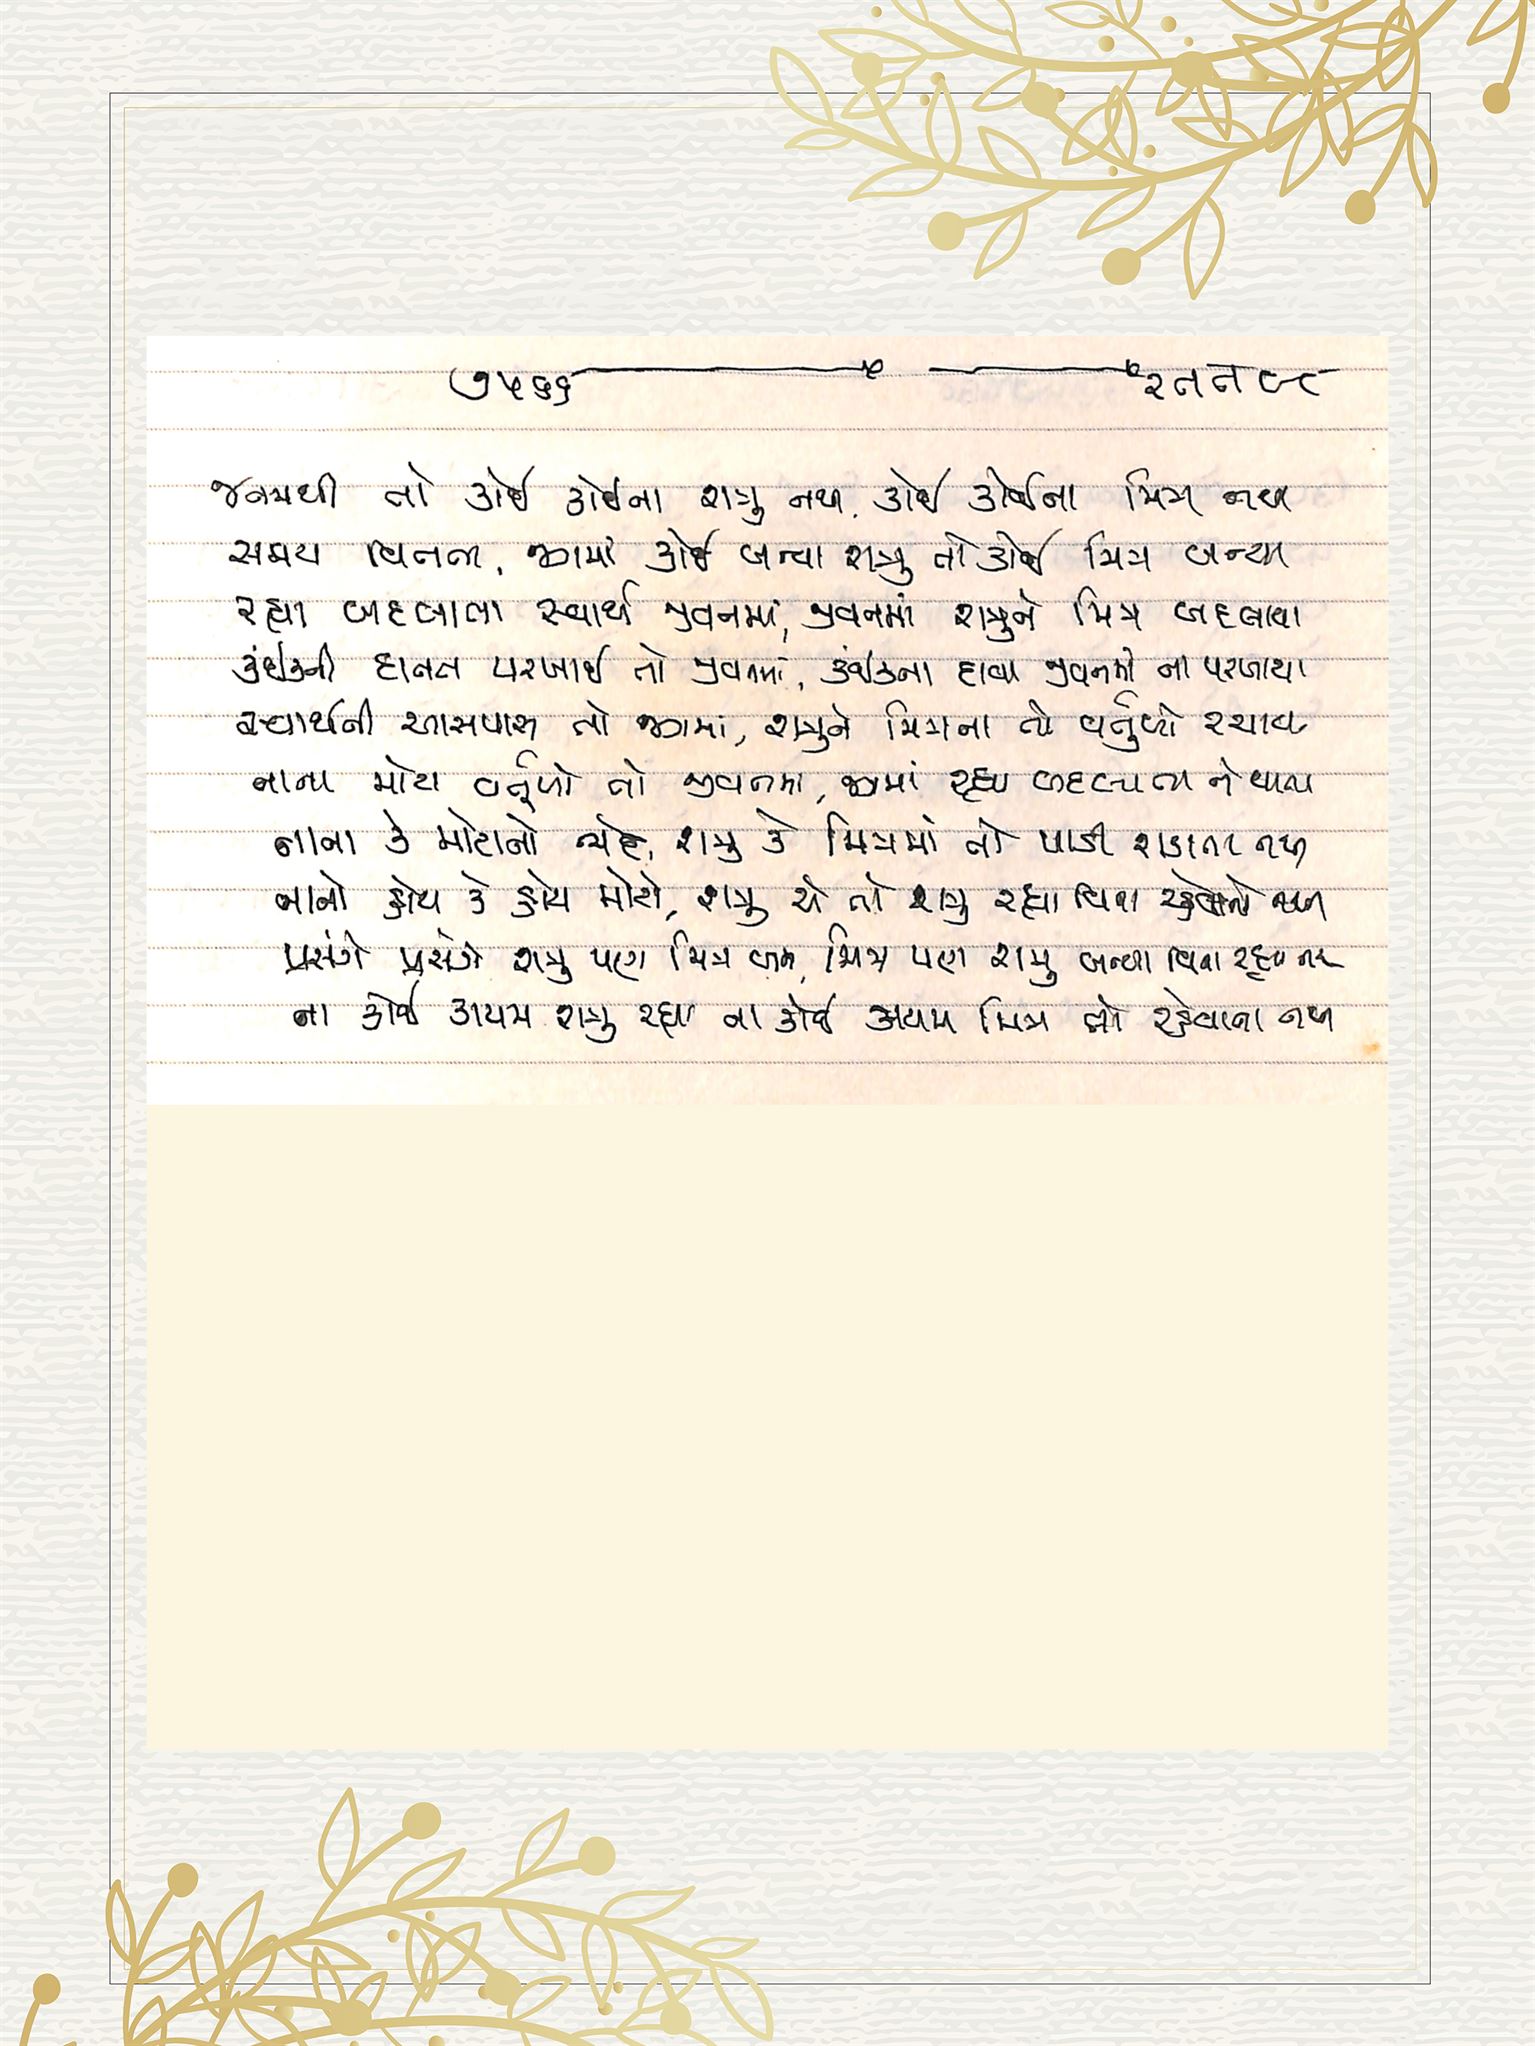 ૭૫૬૬
જનમથી તો કોઈ કોઈના શત્રુ નથી, કોઈ કોઈના મિત્ર નથી
સમય વિતતા, જગમાં કોઈ બન્યા શત્રુ તો કોઈ મિત્ર બન્યા
રહ્યા બદલાતા સ્વાર્થ જીવનમાં, જીવનમાં શત્રુને મિત્ર બદલાયા
કંઈકની દાનત પરખાઈ તો જીવનમાં, કંઈકના દાવા જીવનમાં ના પરખાયા
સ્વાર્થની આસપાસ તો જગમાં, શત્રુને મિત્રના તો વર્તુળો રચાય
નાના મોટા વર્તુળો તો જીવનમાં, જગમાં રહ્યા બદલાતા ને થાતા
નાના કે મોટાનો ભેદ, શત્રુ કે મિત્રમાં તો પાડી શકાતા નથી
નાનો હોય કે હોય મોટો, શત્રુ એ તો શત્રુ રહ્યા વિના રહેવાનો નથી
પ્રસંગે પ્રસંગે શત્રુ પણ મિત્ર બને, મિત્ર પણ શત્રુ બન્યા વિના રહ્યા નથી
ના કોઈ કાયમ શત્રુ રહ્યા ના કોઈ કાયમ મિત્ર તો રહેવાના નથી